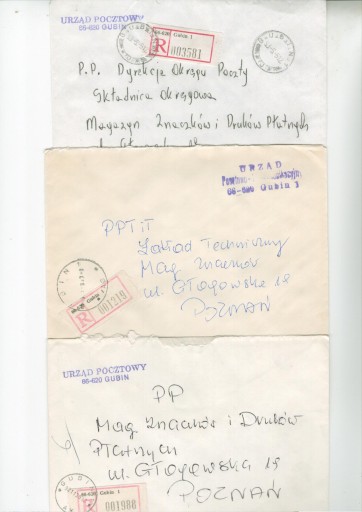 URZĄD POCZTOWY
66-620 GUBIN
66-620 Gubin 1
R
003581
P.P. Dyrekcja Okręgu Poczty
Składnica Okręgowa
Magazyn Znaczków i Druków Płatnych
URZĄD
66-620 Gubin 1
PPTiT
Zakład Techniczny
Mag Znaczków
ul. Głogowska 19
POZNAŃ
R
Gubin 1
001319
URZĄD POCZTOWY
66-620 GUBIN
PP
Mag Znaczków i Druków
Płatnych
ul. Głogowska 19
POZNAŃ
GUBIN
66-620 Gubin 1
R
001988